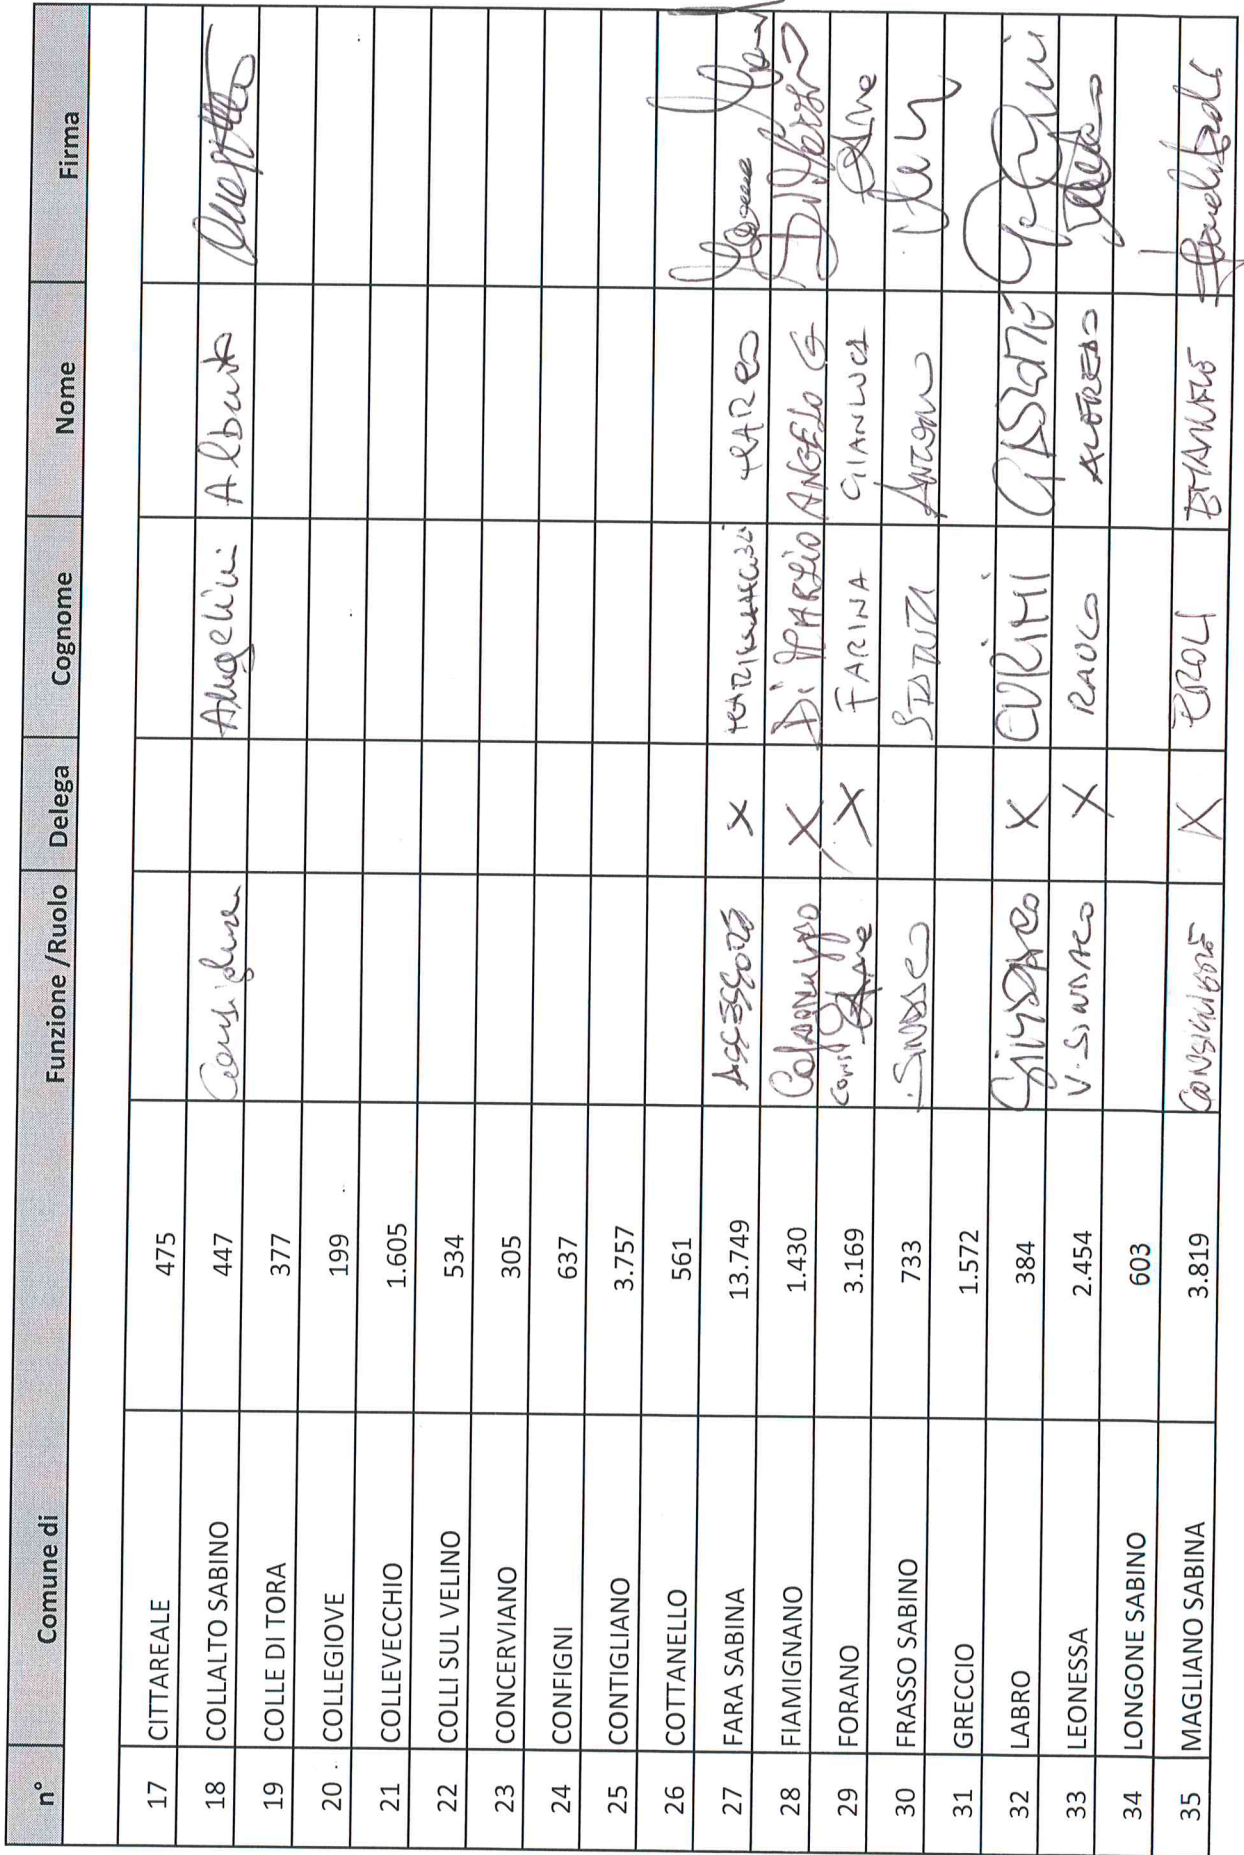 n° Comune di Funzione /Ruolo Delega Cognome Nome Firma
17 CITTAREALE 475
18 COLLALTO SABINO 447 Consigliere Angelini Alberto
19 COLLE DI TORA 377
20 COLLEGIOVE 199
21 COLLEVECCHIO 1.605
22 COLLI SUL VELINO 534
23 CONCERVIANO 305
24 CONFIGNI 637
25 CONTIGLIANO 3.757
26 COTTANELLO 561
27 FARA SABINA 13.749 ASSESSORE X MARCO
28 FIAMIGNANO 1.430 X Di MARZIO ANGELO G
29 FORANO 3.169 X FARINA GIANLUCA
30 FRASSO SABINO 733 SINDACO
31 GRECCIO 1.572
32 LABRO 384 SINDACO X CURINI GASTONE
33 LEONESSA 2.454 V. SINDACO X RAUCO ALFREDO
34 LONGONE SABINO 603
35 MAGLIANO SABINA 3.819 CONSIGLIERE X EROLI EMANUELE